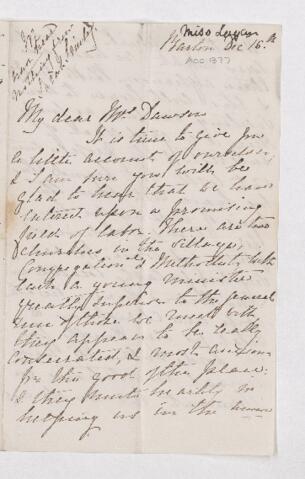 Miss Logan
Barton Dec 16th
ACC 1377
My dear Mrs Dawson
It is time to give you
a little account of ourselves,
& I am sure you will be
glad to hear that we have
entered upon a promising
field of labor. There are two
Churches in the village,
Congregational & Methodist, both
with a young minister
greatly superior to the general
run of those we meet with
they appear to be really
consecrated, & most anxious
for the good of the place.
& they unite heartily in
helping us in the